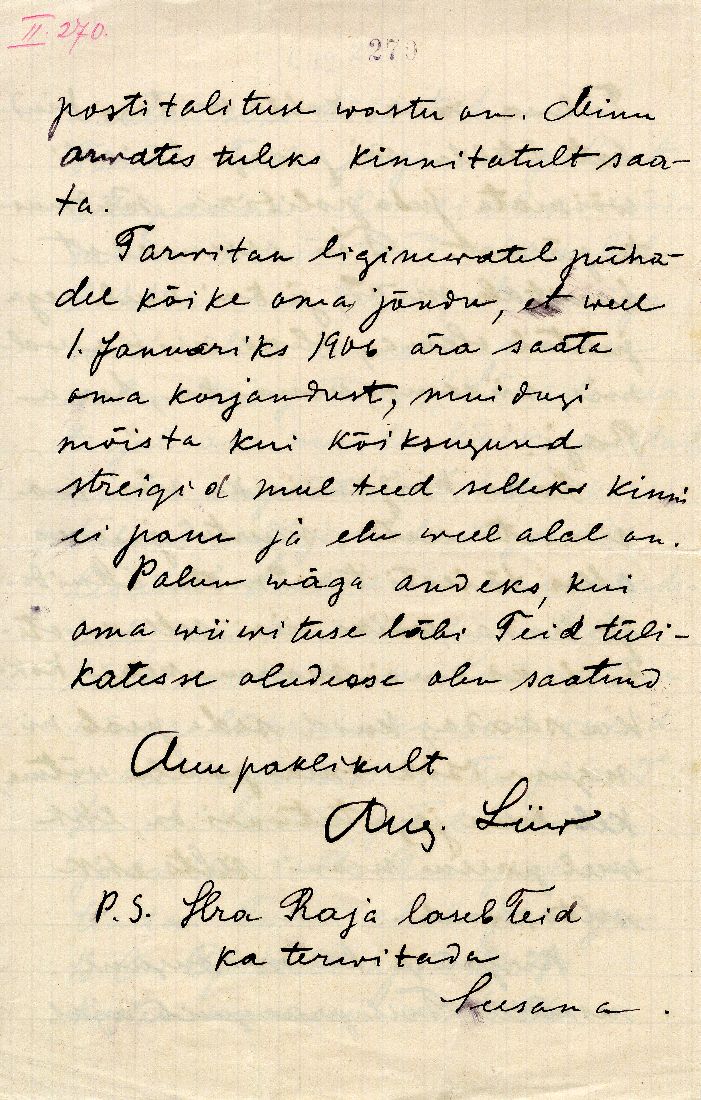 II. 270.
270
postitalituse wastu on. Minu
arwates tuleks kinnitatult saa-
ta.
Tarwitan liginewatel pühä-
del kõike oma jõudu, et weel
1. Januariks 1906 ära saata
oma korjandust, muidugi
mõista kui kõiksugused
streigid mul teed selleks kinni
ei pane ja elu weel alal on.
Palun wäga andeks, kui
oma wiiwituse läbi Teid tüli-
katesse oludesse olen saatnud
Auupaklikult
Aug. Liiw
P.S. Hra Raja laseb Teid
ka terwitada